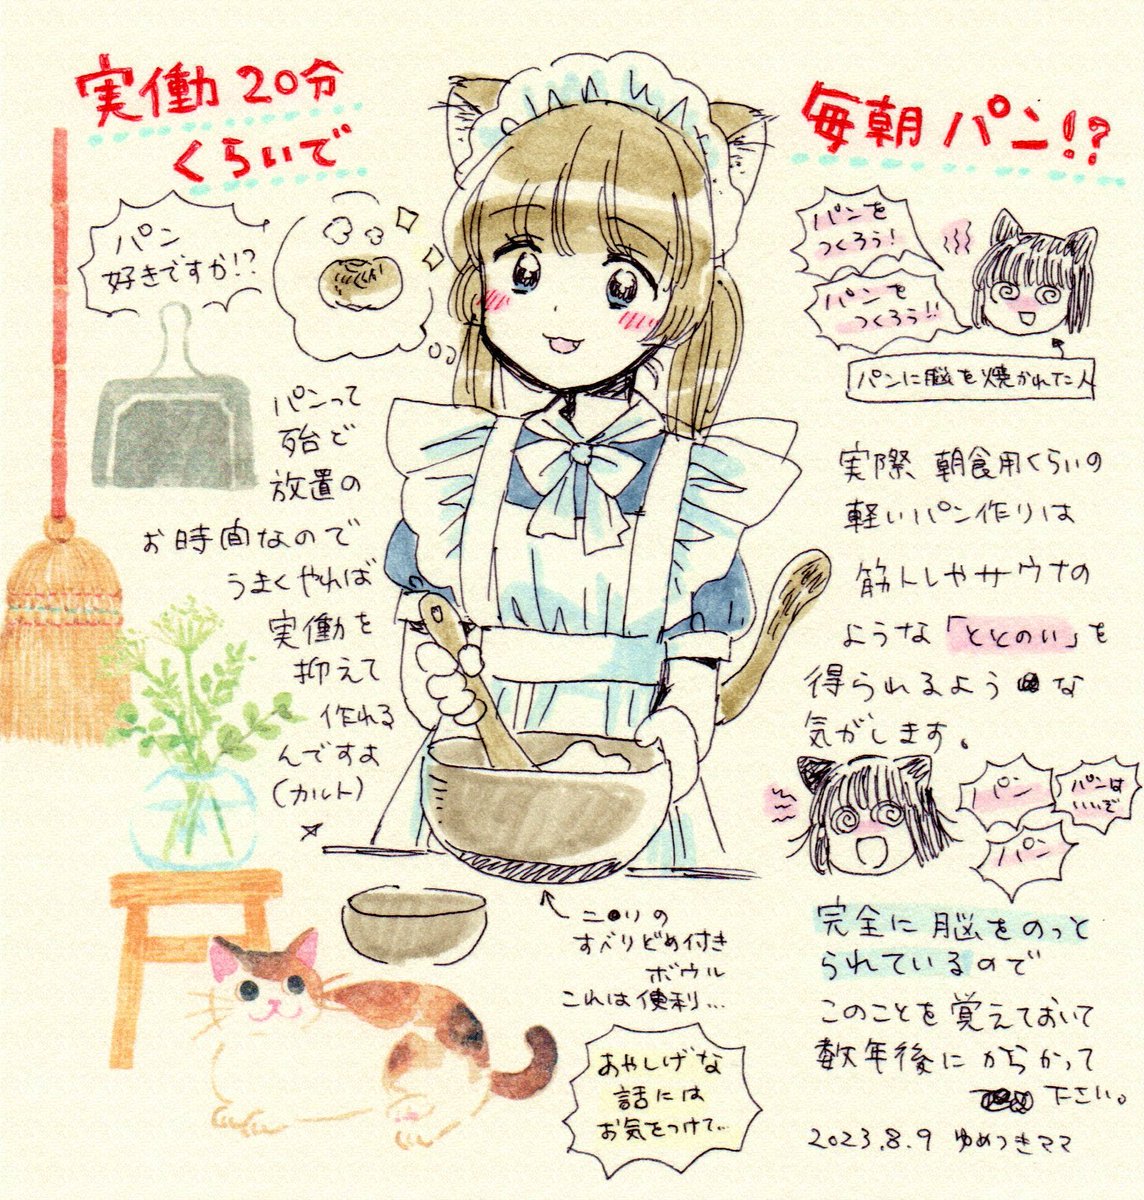 実働20分
くらいで
毎朝パン!?
パン
好きですか!?
パンを
つくろう!
パンを
つくろう!!
パンに脳を焼かれた人
パンって
殆ど
放置の
お時間なので
うまくやれば
実働を
抑えて
作れる
んですよ
(カルト)
実際 朝食用くらいの
軽いパン作りは
筋トレやサウナの
ような「ととのい」を
得られるような
気がします。
パン
パンは
いいぞ
パン
ニ●リの
すべりどめ付き
ボウル
これは便利…
あやしげな
話には
お気をつけて…
完全に脳をのっと
られているので
このことを覚えておいて
数年後にからかって
下さい。
2023.8.9 ゆめつきママ